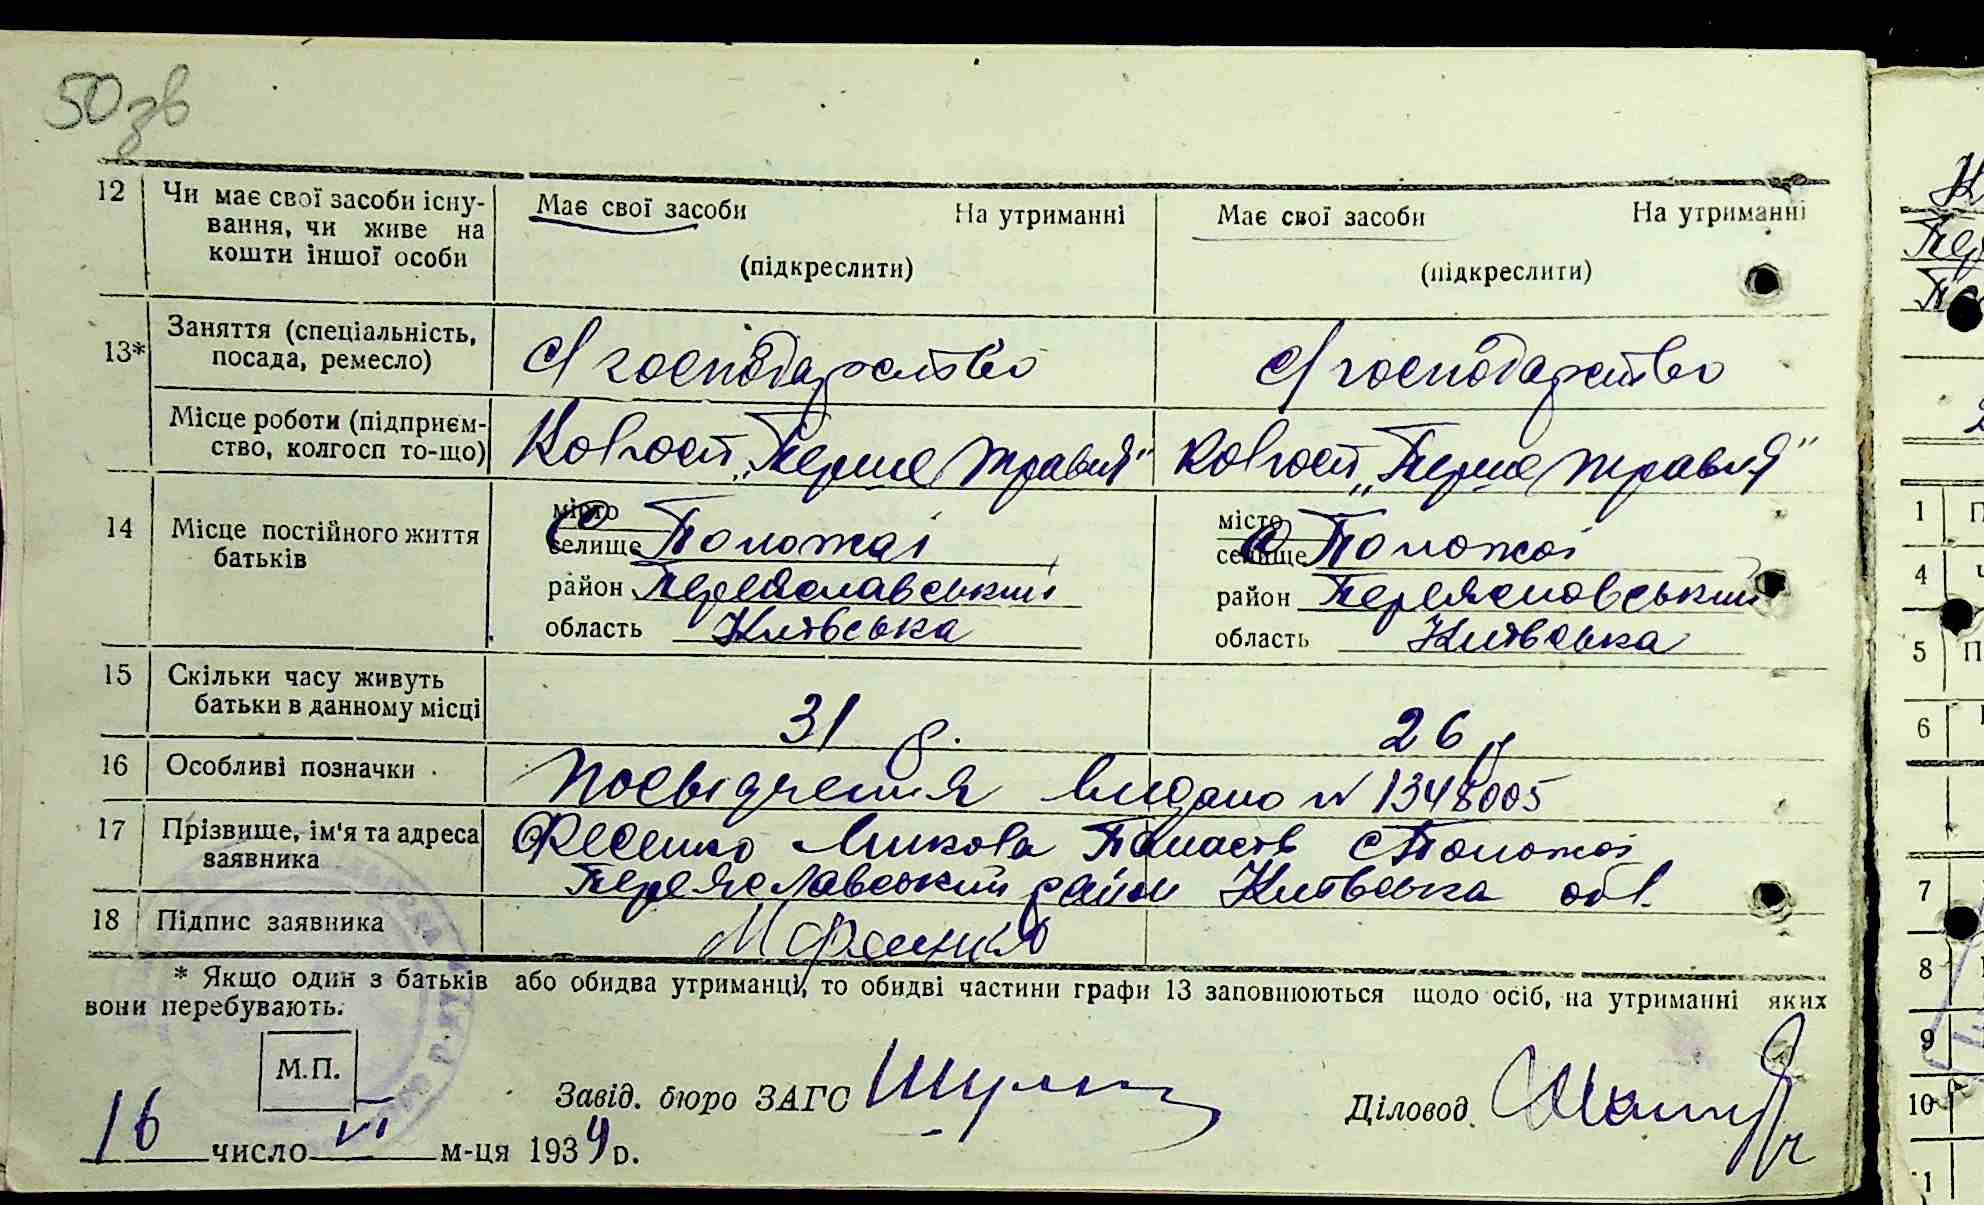 50зв
12 Чи має свої засоби існу- Має свої засоби На утриманні Має свої засоби На утриманні
вання, чи живе на
кошти іншої особи (підкреслити) (підкреслити)
13* Заняття (спеціальність, с/господарство с/господарство
посада, ремесло)
Місце роботи (підприєм- Колгосп „Перше травня" Колгосп „Перше травня"
ство, колгосп то-що)
14 Місце постійного життя місто місто
батьків селище с Положаі селище с Положаі
район Переяславський район Переяславський
область Київська область Київська
15 Скільки часу живуть
батьки в данному місці 31 р. 26 р
16 Особливі позначки Посвідчення видано № 1348005
17 Прізвище, ім'я та адреса Фесенко Микола Панасів с Положаі
заявника Переяславський район Київська обл.
18 Підпис заявника М Фесенко
* Якщо один з батьків або обидва утриманці, то обидві частини графи 13 заповнюються щодо осіб, на утриманні яких
вони перебувають.
М.П.
Завід. бюро ЗАГС Діловод
16 число VI м-ця 1939 р.
1 П
4
5 П
6
7
8
9
10